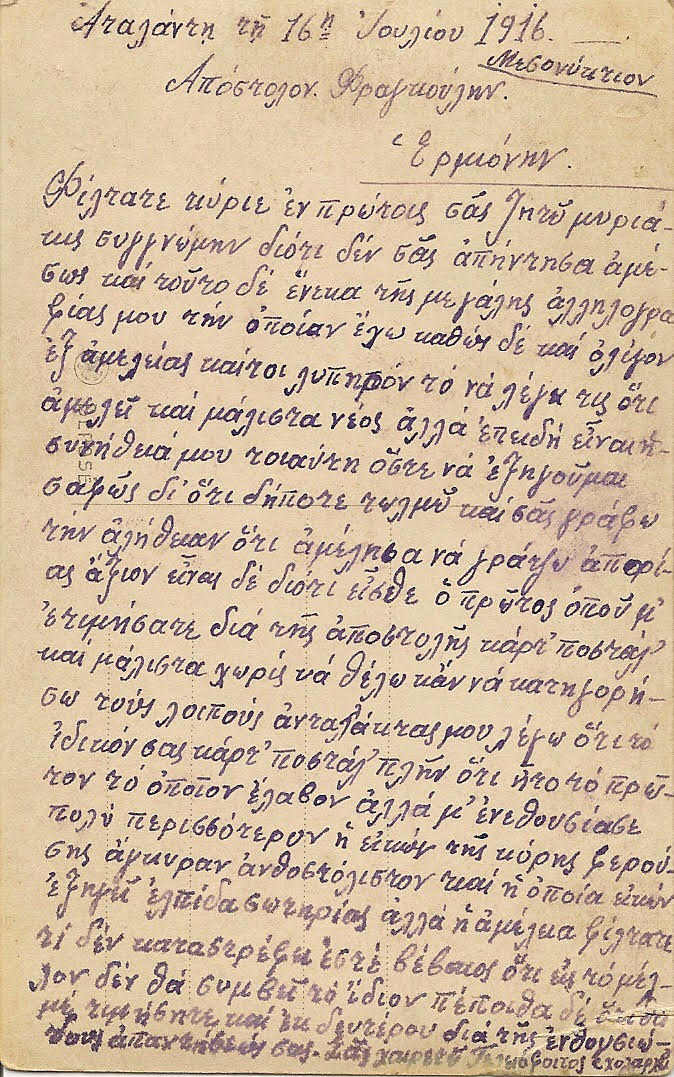 Ἀταλάντη τῇ 16ῃ Ἰουλίου 1916.
Μεσονύκτιον
Ἀπόστολον Φραγκούλην.
Ἑρμιόνην.
Φίλτατε κύριε ἐν πρώτοις σᾶς ζητῶ μυριά-
κις συγγνώμην διότι δέν σᾶς ἀπήντησα ἀμέ-
σως καί τοῦτο δέ ἕνεκα τῆς μεγάλης ἀλληλογρα
φίας μου τήν ὁποίαν ἔχω καθώς δέ καί ὀλίγον
ἐξ ἀμελείας καίτοι λυπηρόν τό νά λέγῃ τις ὅτι
ἀμελεῖ καί μάλιστα νέος ἀλλά ἐπειδή εἶναι ἡ
συνήθειά μου τοιαύτη ὥστε νά ἐξηγοῦμαι
σαφῶς δι' ὅτι δήποτε τολμῶ καί σᾶς γράφω
τήν ἀλήθειαν ὅτι ἀμέλησα νά γράψω ἀπορί-
ας ἄξιον δέ διότι εἶσθε ὁ πρῶτος ὁποῦ μ'
ἐτιμήσατε διά τῆς ἀποστολῆς κάρτ' ποστάλ'
καί μάλιστα χωρίς νά θέλω κἄν νά κατηγορή-
σω τούς λοιπούς ἀνταλάκτας μου λέγω ὅτι τό
ἰδικόν σας κάρτ' ποστάλ' πλήν ὅτι ἦτο τό πρῶ-
τον τό ὁποῖον ἔλαβον ἀλλά μ' ἐνεθουσίασε
πολύ περισσότερον ἡ εἰκών τῆς κόρης φερού-
σης ἄγκυραν ἀνθοστόλιστον καί ἡ ὁποία εἰκών
ἐξηγεῖ ἐλπίδα σωτηρίας ἀλλά ἡ ἀμέλεια φίλτατε
τί δέν καταστρέφει ἐστέ βέβαιος ὅτι εἰς τό μέλ-
λον δέν θά συμβεῖ τό ἴδιον πέποιθα δέ ὅτι θά
μέ τιμήσητε καί ἐκ δευτέρου διά τῆς ἐνθουσιώ-
δους ἀπαντήσεώς σας. Σᾶς χαιρετῶ